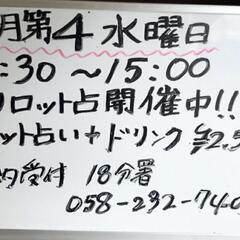 月第4水曜日
:30～15:00
リロット占開催中!!
ット占い+ドリンク ¥2,5
約受付 18分署
058-232-740